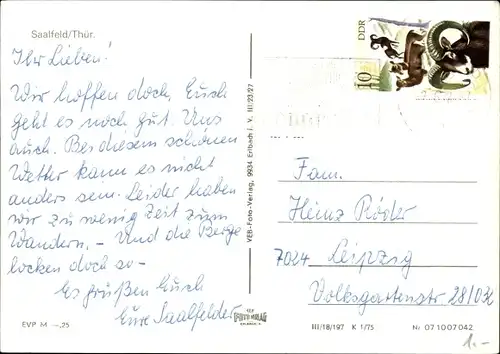 Saalfeld/Thür.
Ihr Lieben!
Wir hoffen doch, Euch
geht es noch gut. Uns
auch. Bei diesem schönen
Wetter kann es nicht
anders sein. Leider haben
wir zu wenig Zeit zum
Wandern. - Und die Berge
locken doch so -
Es grüßen Euch
Eure Saalfelder
EVP M —,25
VEB-Foto-Verlag, 9934 Erlbach i. V. III/23/27
DDR
10
Fam.
Heinz Röder
7024 Leipzig
Volksgartenstr 28/032
III/18/197 K 1/75
Nr 071007042
1.-